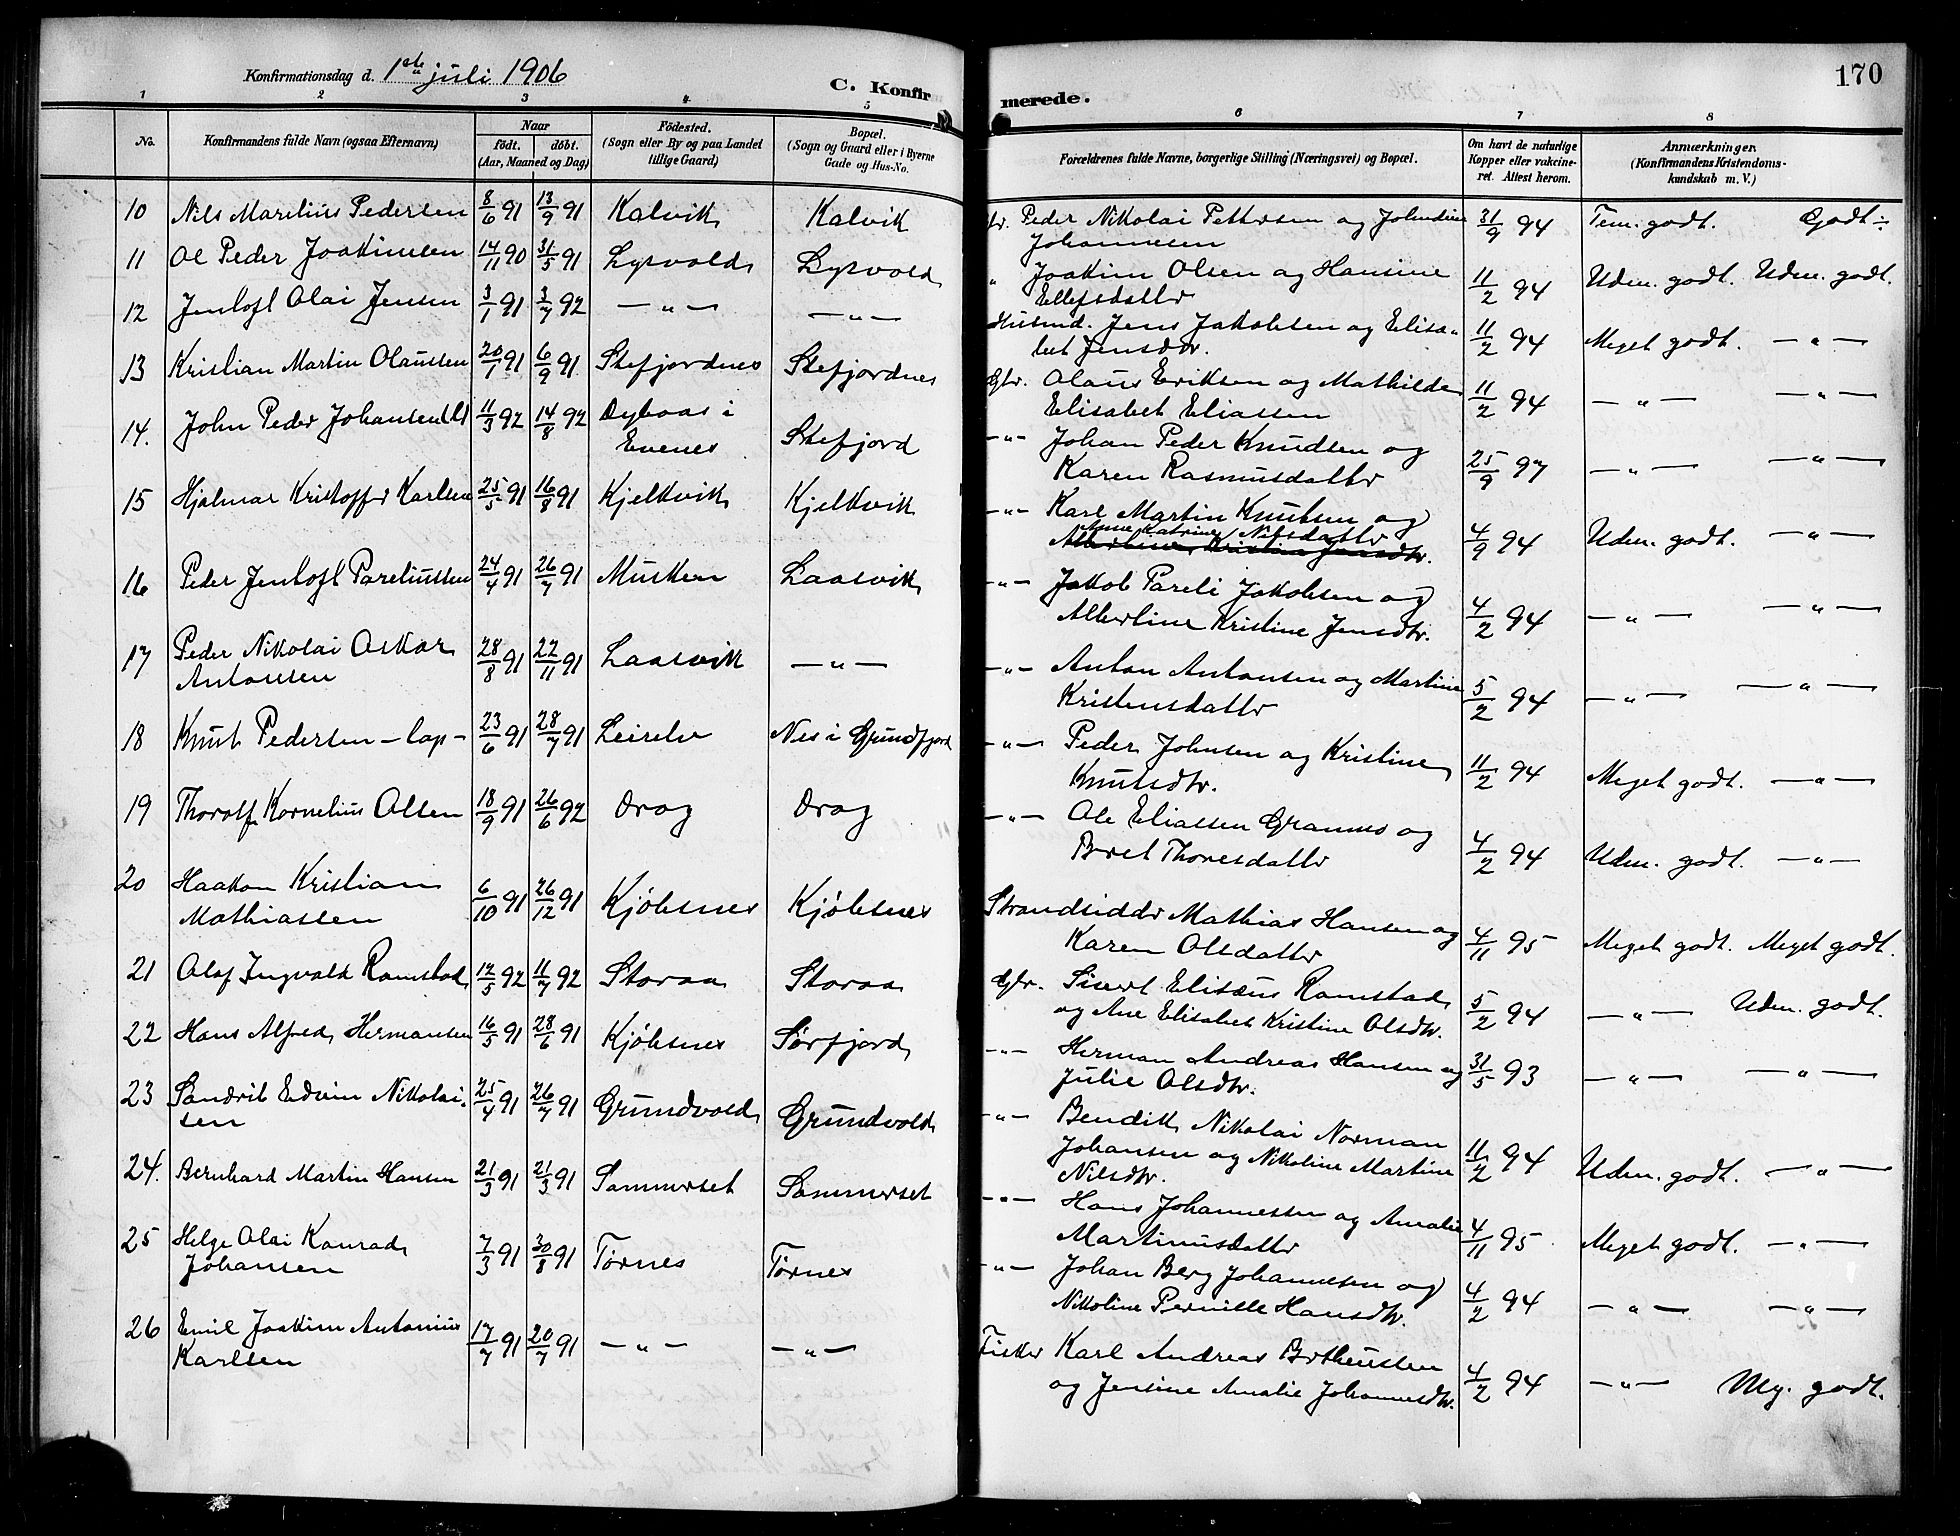 Konfirmationsdag d. 1ste juli 1906
C. Konfir merede. 170
1 2 3 4 5 6 7 8
No. Konfirmandens fulde Navn (ogsaa Efternavn) Naar født. døbt. (Aar, Maaned og Dag) Fødested. (Sogn eller By og paa Landet tillige Gaard) Bopæl. (Sogn og Gaard eller i Byerne Gade og Hus-No. Forældrenes fulde Navne, borgerlige Stilling (Næringsvei) og Bopæl. Om havt de naturlige Kopper eller vakcineret. Attest herom. Anmærkninger. (Konfirmandens Kristendomskundskab m. V.)
10 Nils Marelius Pedersen 8/6 91 13/9 91 Kalvik Kalvik Gbr. Peder Nikolai Pettersen og Johndine 31/9 94 Tem. godt. Godt ÷
Johannesen
11 Ol Peder Joakimsen 14/11 90 31/5 91 Lysvold Lysvold " Joakim Olsen og Hansine 11/2 94 Uden. godt. Uden. godt.
Ellefsdattr
12 Jentoft Olai Jensen 3/1 91 3/7 92 — " — — " — Husmd. Jens Jakobsen og Elisa- 11/2 94 Meget godt. — " —
bet Jensdtr.
13 Kristian Martin Olaussen 20/1 91 6/9 91 Stefjordnes Stefjordnes Gbr. Olaus Eriksen og Mathilde 11/2 94 — " — — " —
Elisabet Eliassen
14. John Peder Johansen 11/3 92 14/8 92 Dybaas i — " — Johan Peder Knudsen og
Evenes Stefjord Karen Rasmusdattr 25/9 97 — " — — " —
15 Hjalmar Kristoffer Karlsen 25/5 91 16/8 91 Kjelkvik Kjelkvik — " — Karl Martin Knutsen og
Anne Katrine Nilsdattr 4/9 94 Uden. godt. — " —
Albertine Kristine Jensdtr.
16 Peder Jentoft Pareliussen 24/4 91 26/7 91 Musken Laasvik — " — Jakob Pareli Jakobsen og
Albertine Kristine Jensdtr. 4/2 94 — " — — " —
17 Peder Nikolai Oskar 28/8 91 22/11 91 Laasvik — " — — " — Anton Antonsen og Martine 5/2 94 — " — — " —
Antonsen Kristensdattr
18 Knut Pedersen – lap – 23/6 91 28/7 91 Leirelv Nes i Grundfjord — " — Peder Johnsen og Kristine 11/2 94 Meget godt. — " —
Knutsdtr.
19 Thoralf Kornelius Olsen 18/9 91 26/6 92 Drag Drag — " — Ole Eliassen Granmo og
Beret Thoresdattr 4/2 94 Uden. godt. — " —
20 Haakon Kristian 6/10 91 26/12 91 Kjøbsnes Kjøbsnes Strandsidder Mathias Hansen og 4/11 95 Meget godt. Meget godt.
Mathiassen Karen Olsdattr
21 Olaf Ingvald Ramstad 12/5 92 11/7 92 Storaa Storaa Gbr. Sivert Elisæus Ramstad 5/2 94 — " — Uden. godt.
og Ane Elisabet Kristine Olsdtr.
22 Hans Alfred Hermansen 16/5 91 28/6 91 Kjøbsnes Sørfjord — " — Herman Andreas Hansen og 31/5 93 — " — — " —
Julie Olsdtr.
23 Sandrik Edvin Nikolai- 25/4 91 26/7 91 Grundvold Grundvold — " — Bendik Nikolai Norman
sen Johansen og Nikoline Martine 11/2 94 Uden. godt. — " —
Nilsdtr.
24. Bernhard Martin Hansen 21/3 91 21/3 91 Sommerset Sommerset — " — Hans Johannessen og Amalie 4/11 95 Meget godt. — " —
Martinusdattr
25 Helge Olai Konrad 7/3 91 30/8 91 Tørnes Tørnes — " — Johan Berg Johannesen og 4/2 94 — " — — " —
Johansen Nikoline Pernille Hansdtr.
26 Emil Joakim Antonius 17/7 91 20/7 91 — " — — " — Fisker Karl Andreas
Karlsen og Jensine Amalie Johannesdtr. 4/2 94 — " — My. godt.